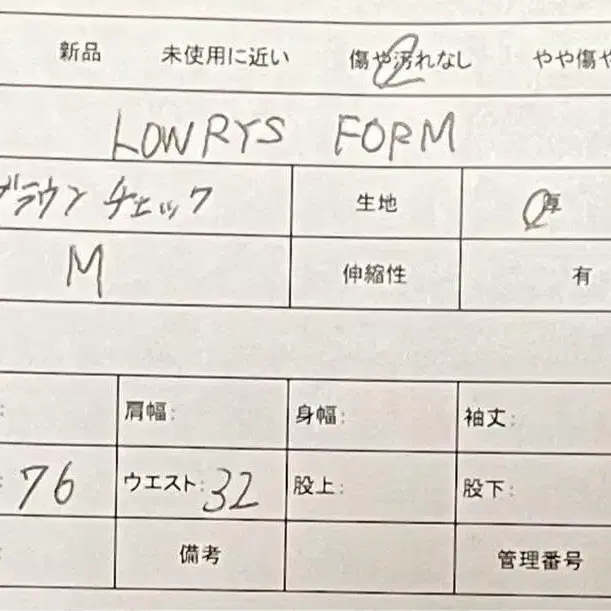 新品 未使用に近い 傷や汚れなし やや傷や
LOWRYS FORM
ブラウンチェック 生地 厚
M 伸縮性 有
: 肩幅: 身幅: 袖丈:
: 76 ウエスト: 32 股上: 股下:
: 備考 管理番号